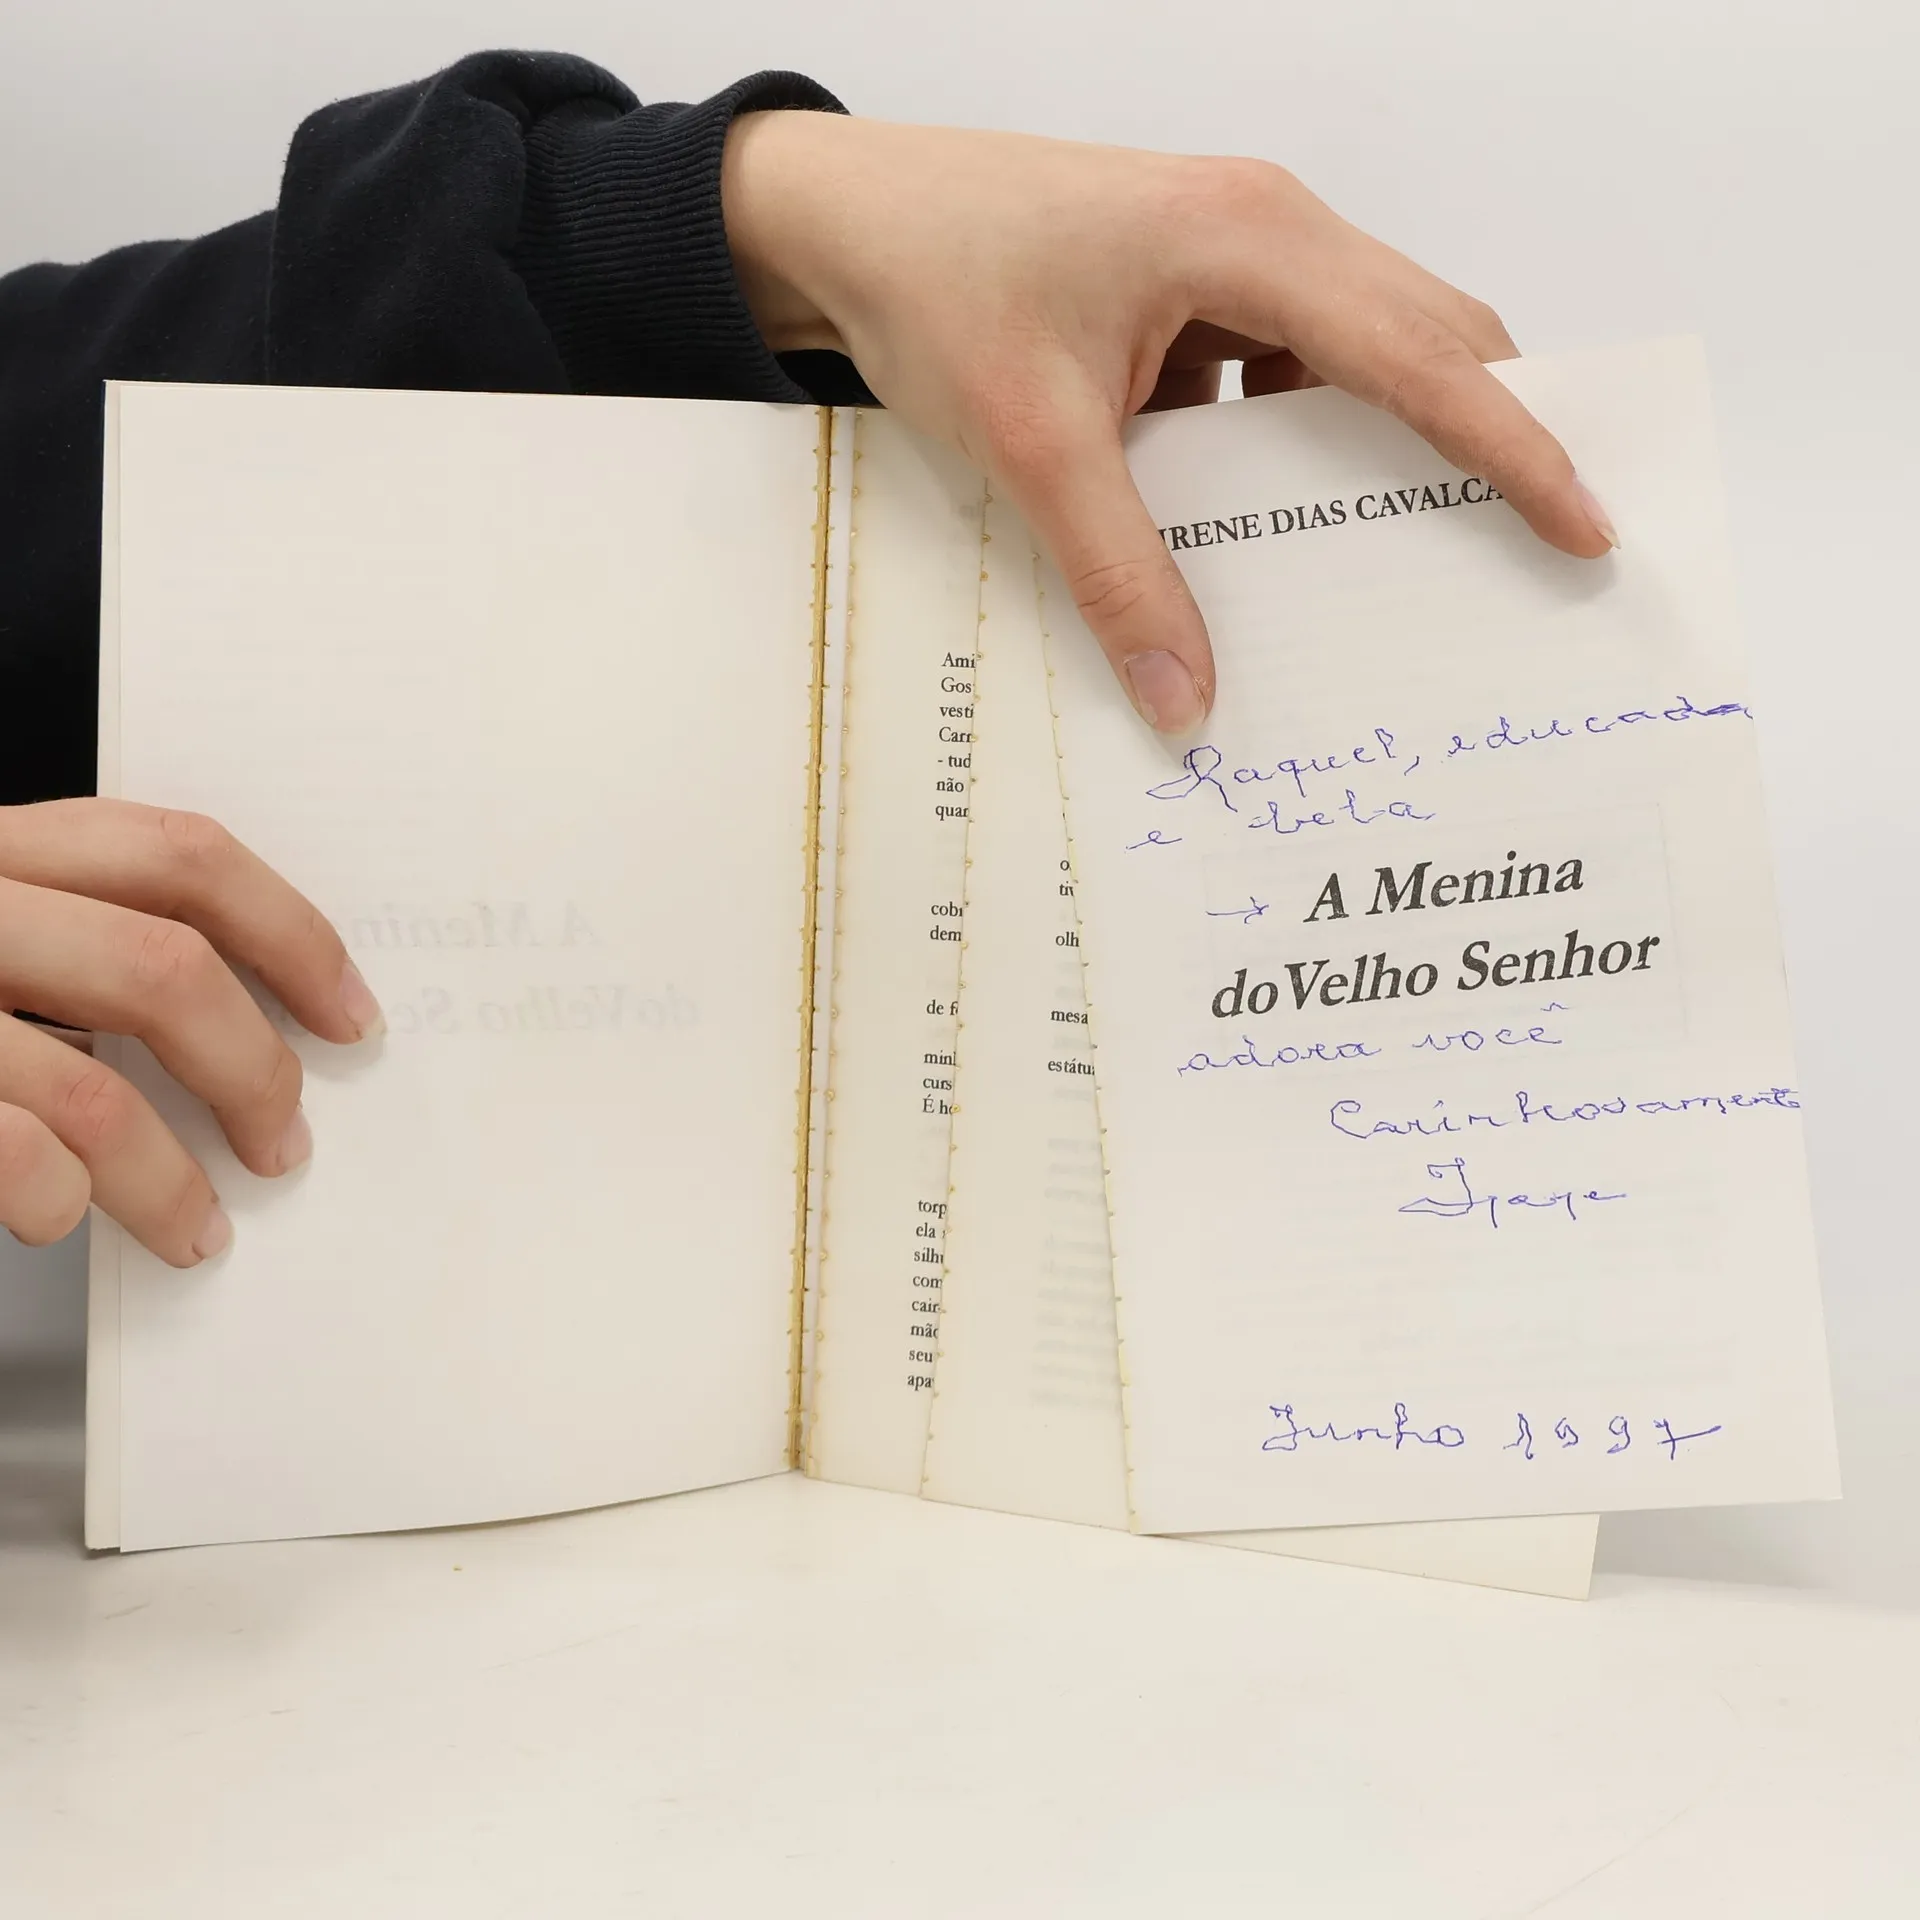 Ami
Gos
vesti
Carr
- tud
não
quar
cobr
dem
de f
minl
curs
É ho
torp
ela
silhu
com
cair
mão
seu
apa
o
tiv
olh
mesa
estátu
IRENE DIAS CAVALCA
Raquel, educada
e bela
→ A Menina
do Velho Senhor
adora você
Carinhosament
Junho 1997
A Menin
do Velho Se